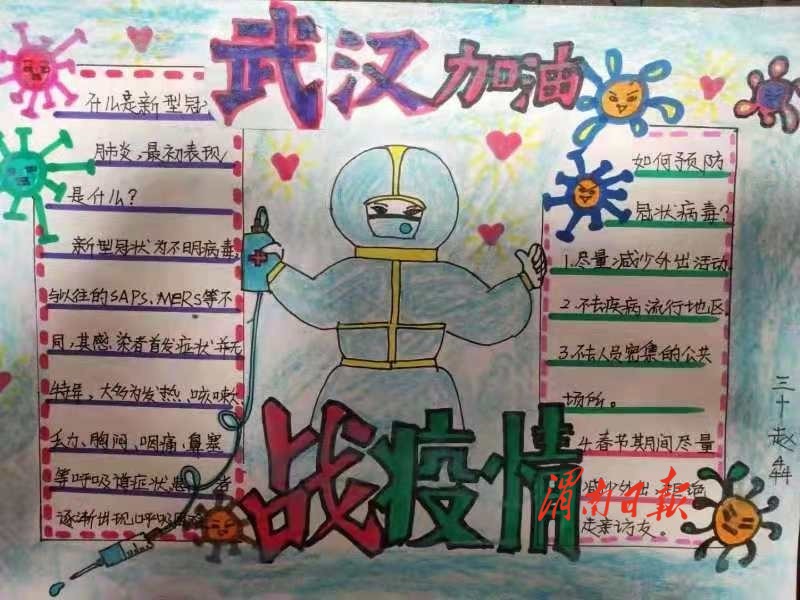 武汉加油
什么是新型冠
肺炎,最初表现
是什么?
新型冠状为不明病毒,
与以往的SAPS、MERS等不
同,其感染者首发症状并无
特异,大多为发热、咳嗽、
乏力、胸闷、咽痛、鼻塞
等呼吸道症状 者
逐渐出现呼吸
如何预防
冠状病毒?
1.尽量减少外出活动.
2.不去疾病流行地区.
3.不去人员密集的公共
场所。
4.春节期间尽量
减少外出
走亲访友。
战疫情
渭南日报
三十赵犇